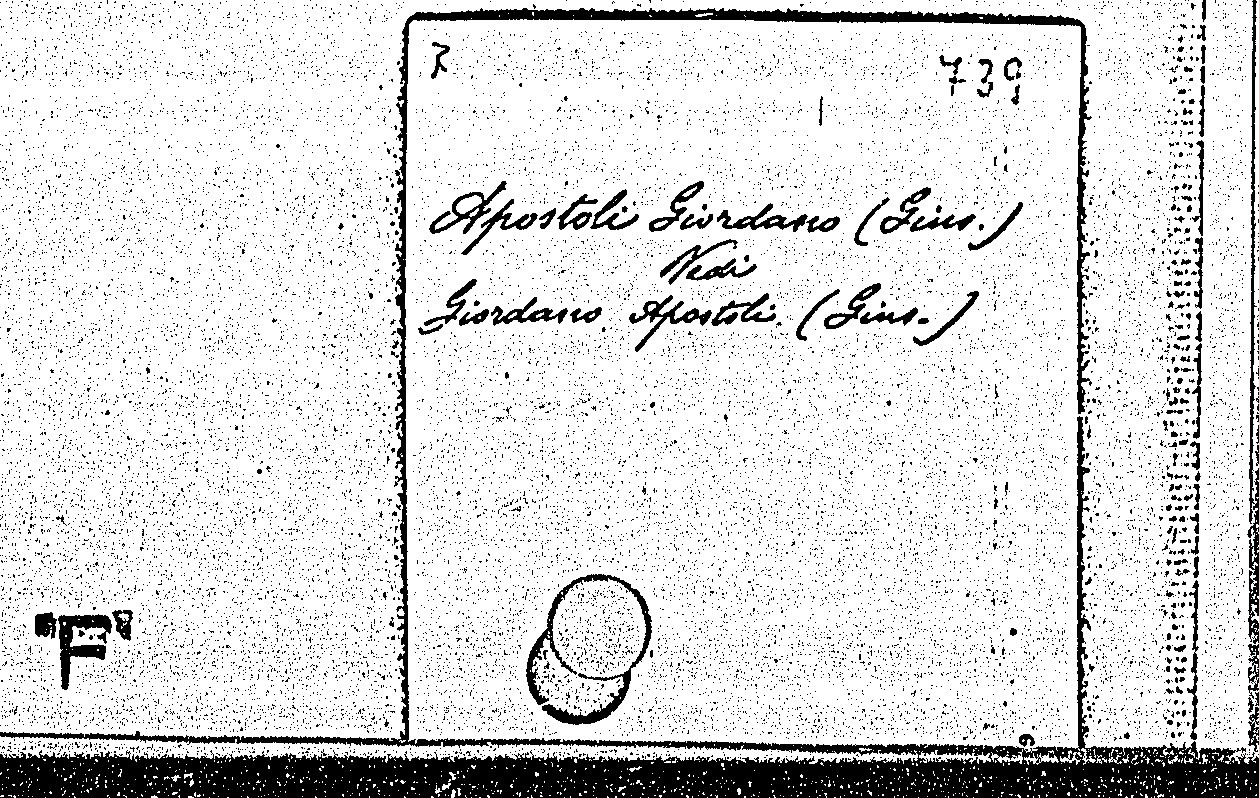 739
Apostoli Giordano (Gius.)
Vedi
Giordano Apostoli. (Gius.)
"F"